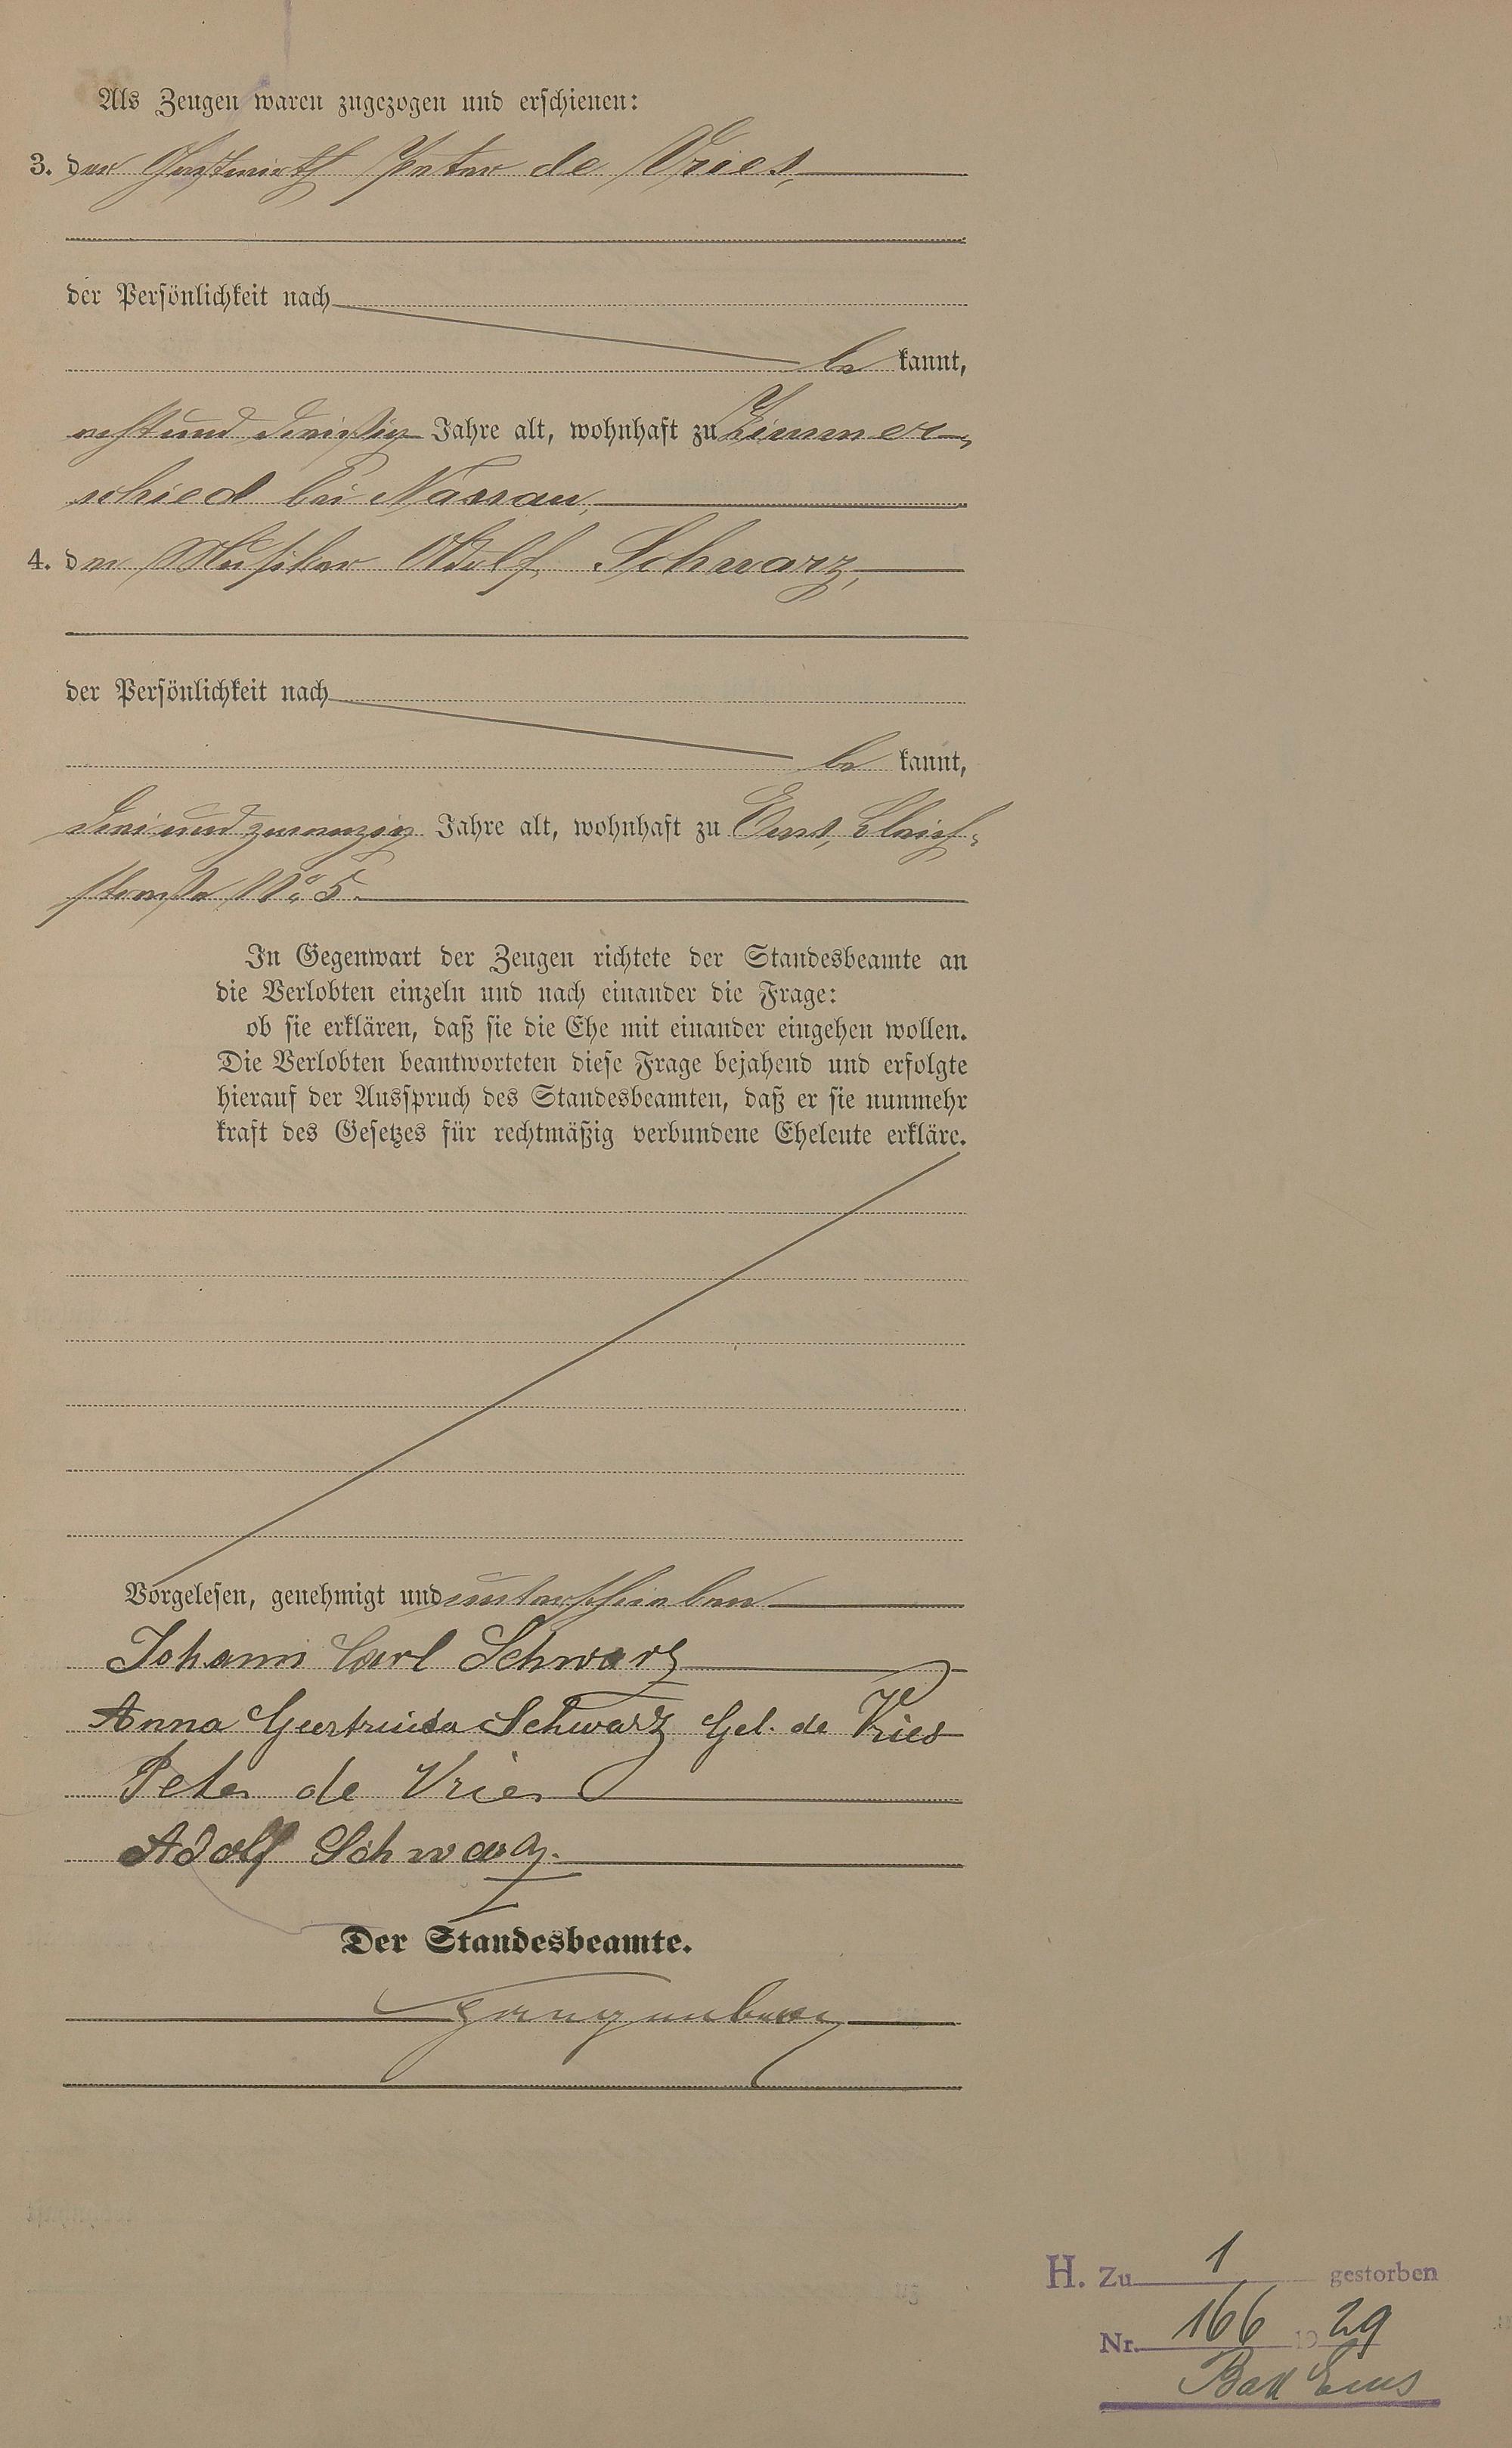 Als Zeugen waren zugezogen und erschienen:
3. der Gastwirth Peter de Vries,
der Persönlichkeit nach
be kannt,
acht und dreißig Jahre alt, wohnhaft zu Zimmer-
schied bei Nassau,
4. der Musiker Adolf Schwarz,
der Persönlichkeit nach
be kannt,
drei und zwanzig Jahre alt, wohnhaft zu Ems, Bleich-
straße No. 5.
In Gegenwart der Zeugen richtete der Standesbeamte an
die Verlobten einzeln und nach einander die Frage:
ob sie erklären, daß sie die Ehe mit einander eingehen wollen.
Die Verlobten beantworteten diese Frage bejahend und erfolgte
hierauf der Ausspruch des Standesbeamten, daß er sie nunmehr
kraft des Gesetzes für rechtmäßig verbundene Eheleute erkläre.
Vorgelesen, genehmigt und unterschrieben
Johann Carl Schwarz
Anna Schwarz Geb. de Vries
Peter de Vries
Adolf Schwarz.
Der Standesbeamte.
H. Zu 1 gestorben
Nr. 166 1929
Bad Ems